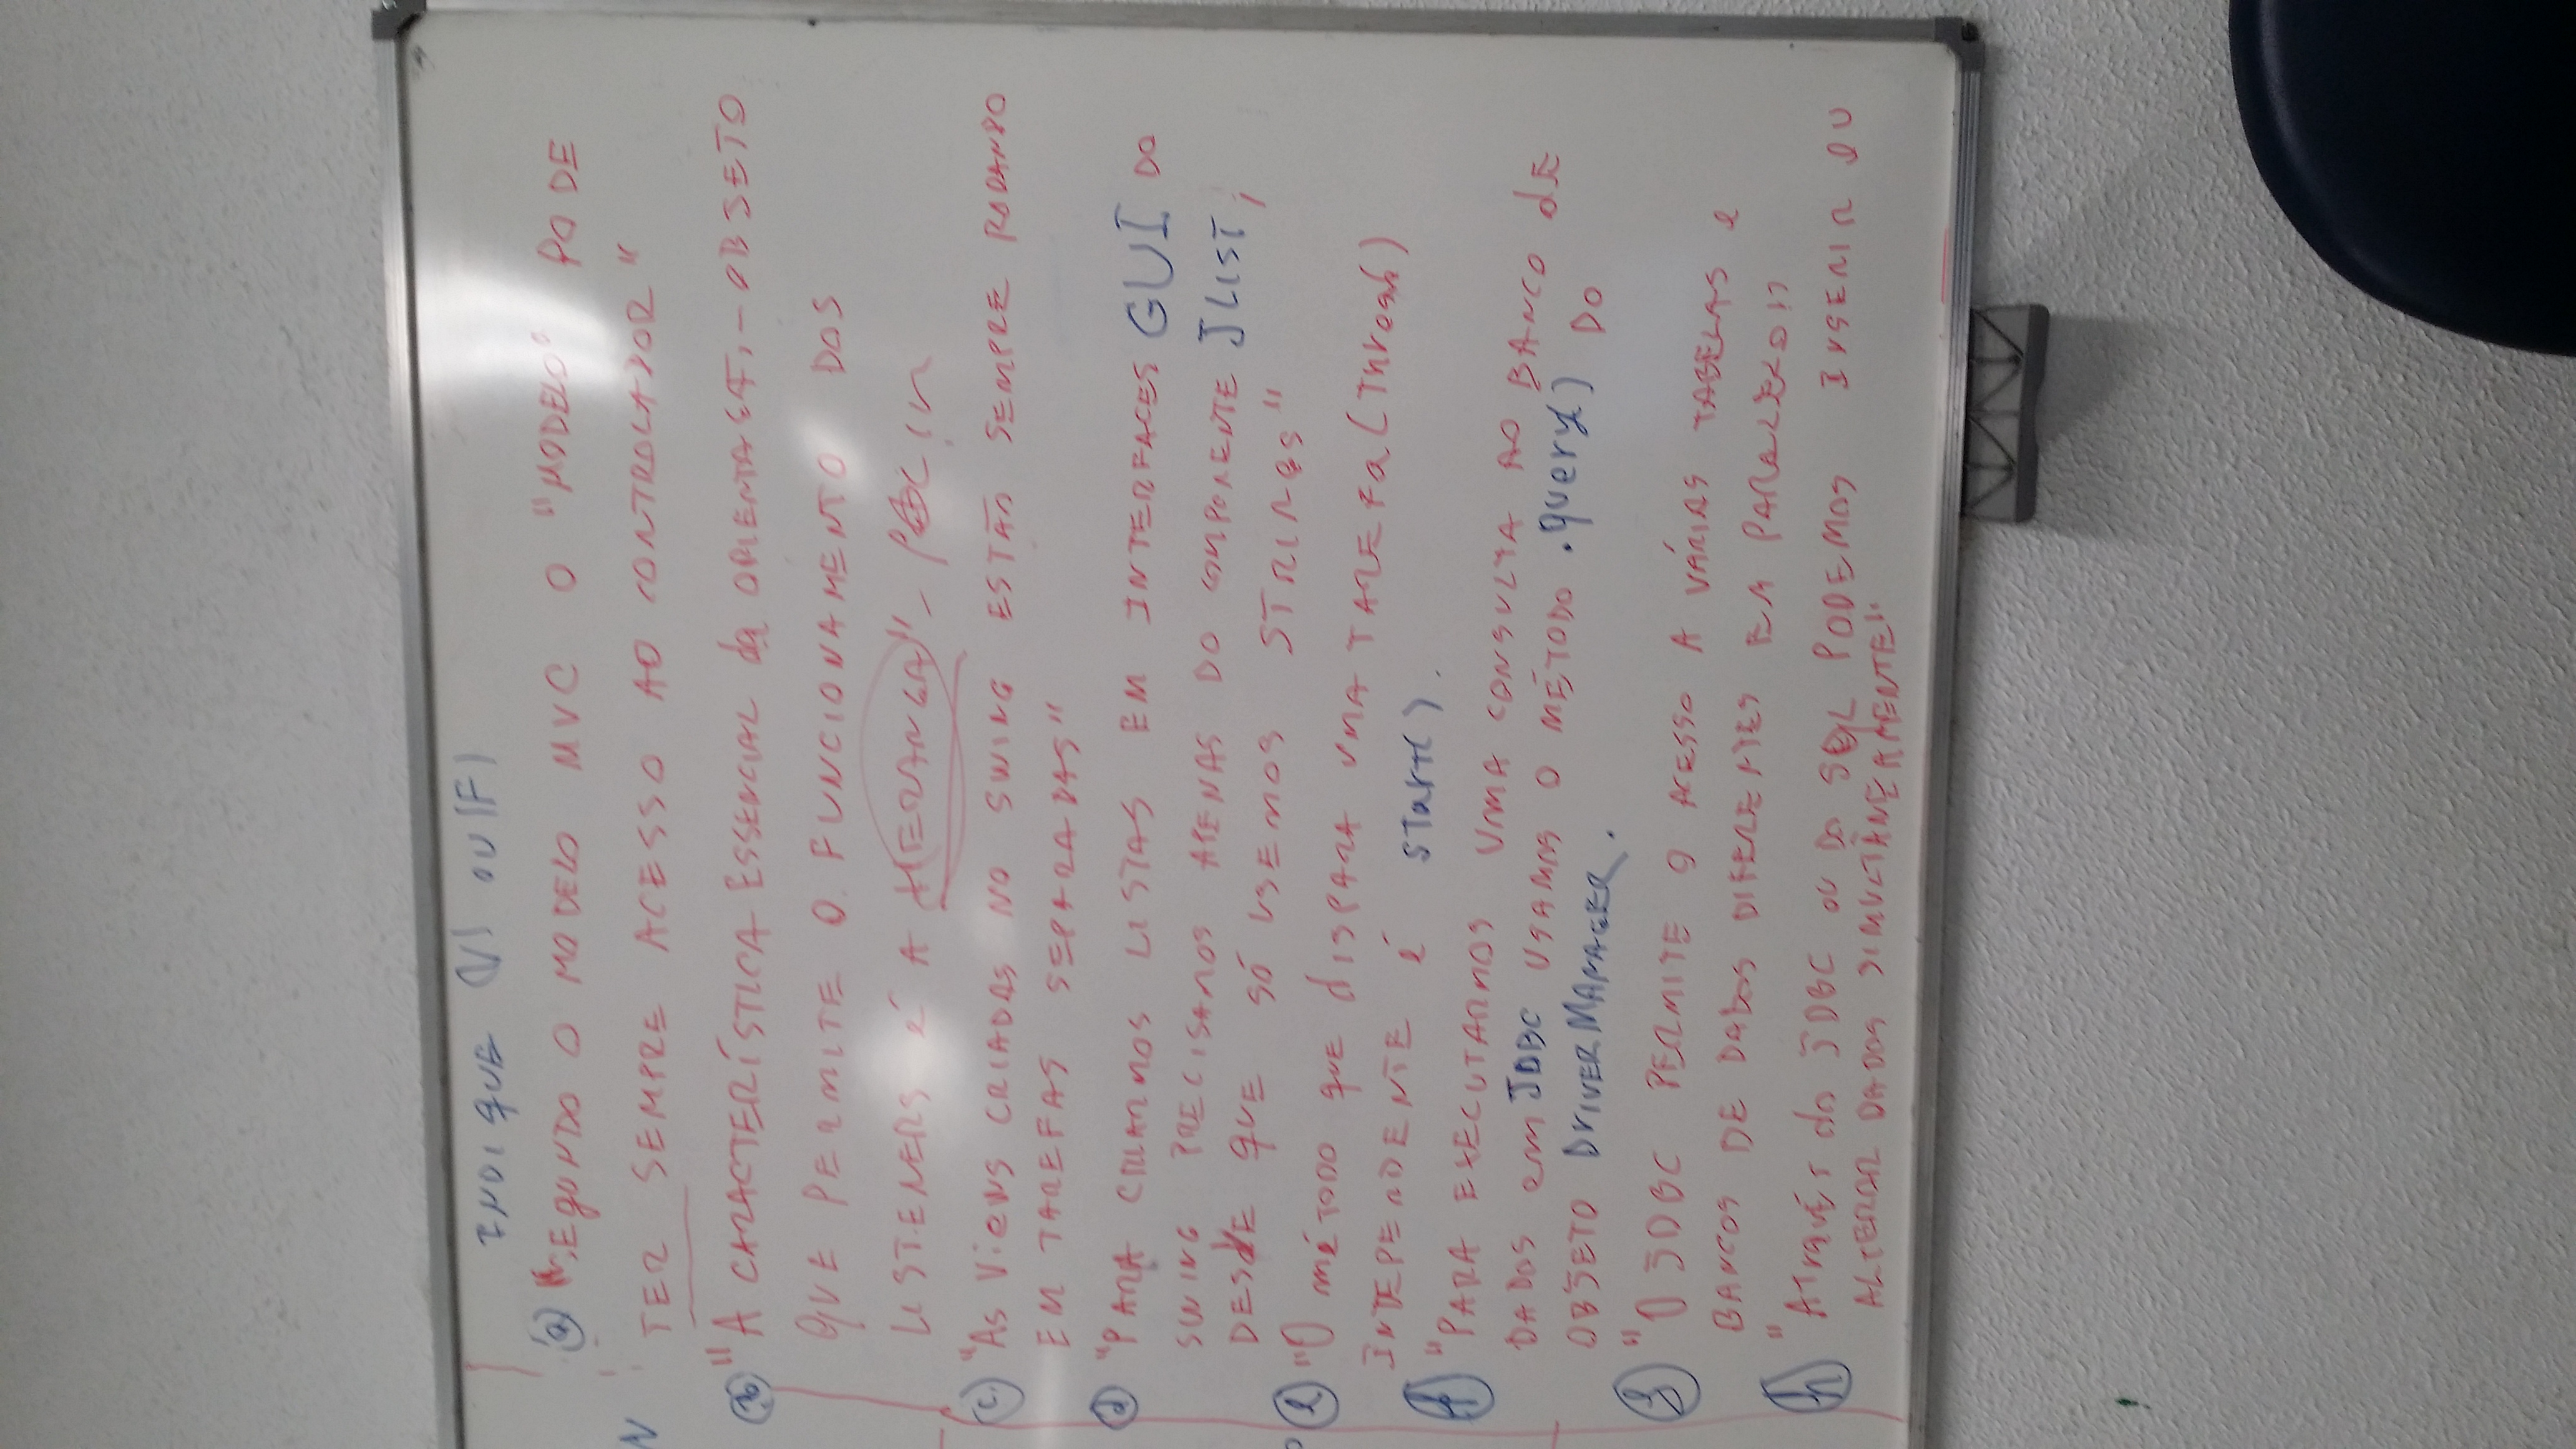 INDIQUE (V) OU (F)
(a) "SEGUNDO O MODELO MVC O "MODELO" PODE
N
TER SEMPRE ACESSO AO CONTROLADOR"
(b) "A CARACTERÍSTICA ESSENCIAL da - OBJETO
QUE PERMITE O FUNCIONAMENTO DOS
LISTENERS É A HERANÇA" -
(c) "AS Views CRIADAS NO SWING ESTÃO SEMPRE RODANDO
EM TAREFAS SEPARADAS"
(d) "PARA CRIARMOS LISTAS EM INTERFACES GUI DO
SWING PRECISAMOS APENAS DO COMPONENTE JLIST,
DESDE QUE SÓ USEMOS STRINGS"
(e) "O MÉTODO QUE dISPARA UMA TAREFA (Thread)
INDEPENDENTE É start().
(f) "PARA EXECUTARMOS UMA CONSULTA AO BANCO dE
DADOS em JDBC USAMOS O MÉTODO .query() DO
OBJETO DRIVERMANAGER.
(g) "O JDBC PERMITE O ACESSO A VÁRIAS TABELAS e
BANCOS DE DADOS DIFERENTES EM PARALELO"
(h) "Através do JDBC ou DO SQL PODEMOS INSERIR OU
ALTERAR DADOS SIMULTÂNEAMENTE"